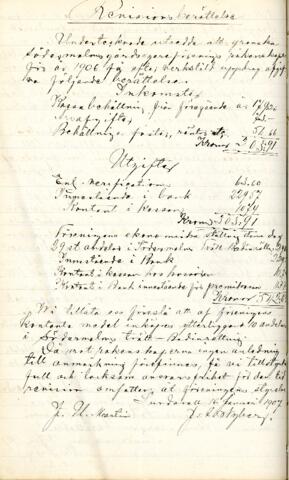 Revisionsberättelse
Undertecknade utsedda att granska
Södermalms gårdsägareförenings räkenskaper
för år 1906 få efter verkställd uppdrag afgif-
va följande berättelse.
Inkomster
Kassabehållning från föregående år
Årsafgifter
Behållning fester, räntor etc. 57.66
Kronor 305.91
Utgifter
Enl. verifikationer 65.60
Innestående i bank 229.57
Kontant i kassan
Kronor 305.91
Föreningens ekonomiska ställning denna dag
29 st andelar i Södermalms tvätt Badinrättn.
Innestående i Bank
Kontant i kassan hos kassören
Kontant i Bank innestående för
Kronor
Vi tillåta oss föreslå att af föreningens
kontanta medel inköpes ytterligare 10 andelar
i Södermalms tvätt- Badinrättning.
Då mot räkenskaperna ingen anledning
till anmärkning förefinnes, få vi tillstyrka
full och tacksam ansvarsfrihet för den tid
revision omfattar, åt föreningens styrelse
Sundsvall Januari 1907